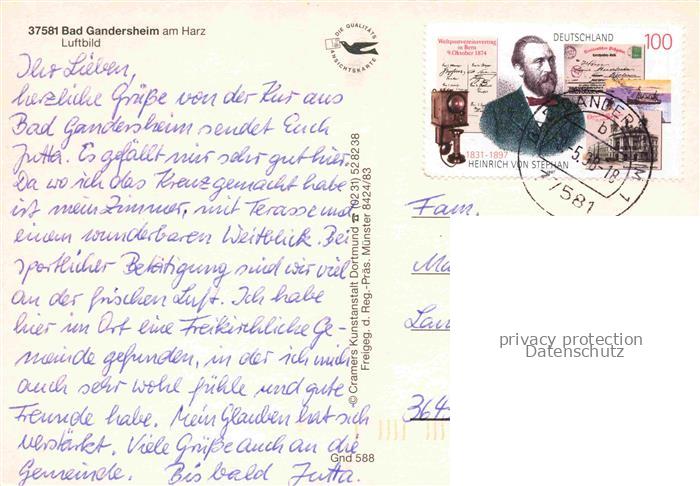 37581 Bad Gandersheim am Harz
Luftbild
DIE QUALITÄTS
ANSICHTSKARTE
Ihr Lieben,
herzliche Grüße von der Kur aus
Bad Gandersheim sendet Euch
Jutta. Es gefällt mir sehr gut hier.
Da wo ich das Kreuz gemacht habe
ist mein Zimmer, mit Terasse und
einem wunderbaren Weitblick. Bei
sportlicher Betätigung sind wir viel
an der frischen Luft. Ich habe
hier im Ort eine Freikirchliche Ge-
meinde gefunden, in der ich mich
auch sehr wohl fühle und gute
Freunde habe. Mein Glauben hat sich
verstärkt. Viele Grüße auch an die
Gemeinde. Bis bald Jutta.
© Cramers Kunstanstalt Dortmund ☎ (0231) 528238
Freigeg. d. Reg.-Präs. Münster 8424/83
Gnd 588
Weltpostvereinsvertrag
in Bern
9. Oktober 1874
DEUTSCHLAND
100
1831-1897
HEINRICH VON STEPHAN
GANDERS
b
-5.98-18
M 1
37581
Fam.
364
privacy protection
Datenschutz